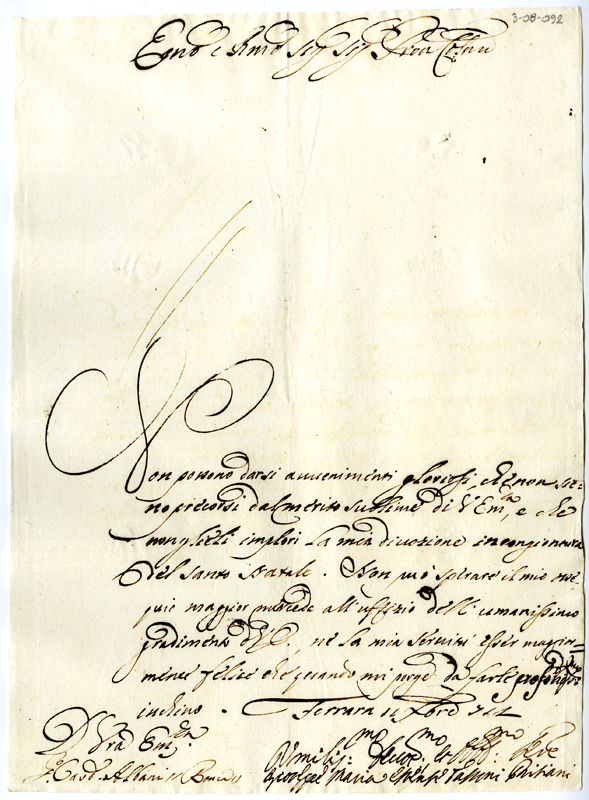 3-08-092
Emo e Rmo Sigr Sigr Pron Colmo
Non possono darsi avvenimenti gloriosi, che non sie=
no precorsi dal merito sublime di V Emza, e che
non glieli implori la mia divozione in congiontura
del Santo Natale. Non può sperare il mio osse=
quio maggior mercede all'uffizio dell'umanissimo
gradimento di V.E., nè la mia servitù esser maggior=
mente felice che quando mi porge da farle profondissimo
inchino. Ferrara 14 Xbre 722
D Vra Emza
Sr Card Albani Roma
Umilis: mo Devot mo et Obb: mo Sre
Maria Estense Tassoni